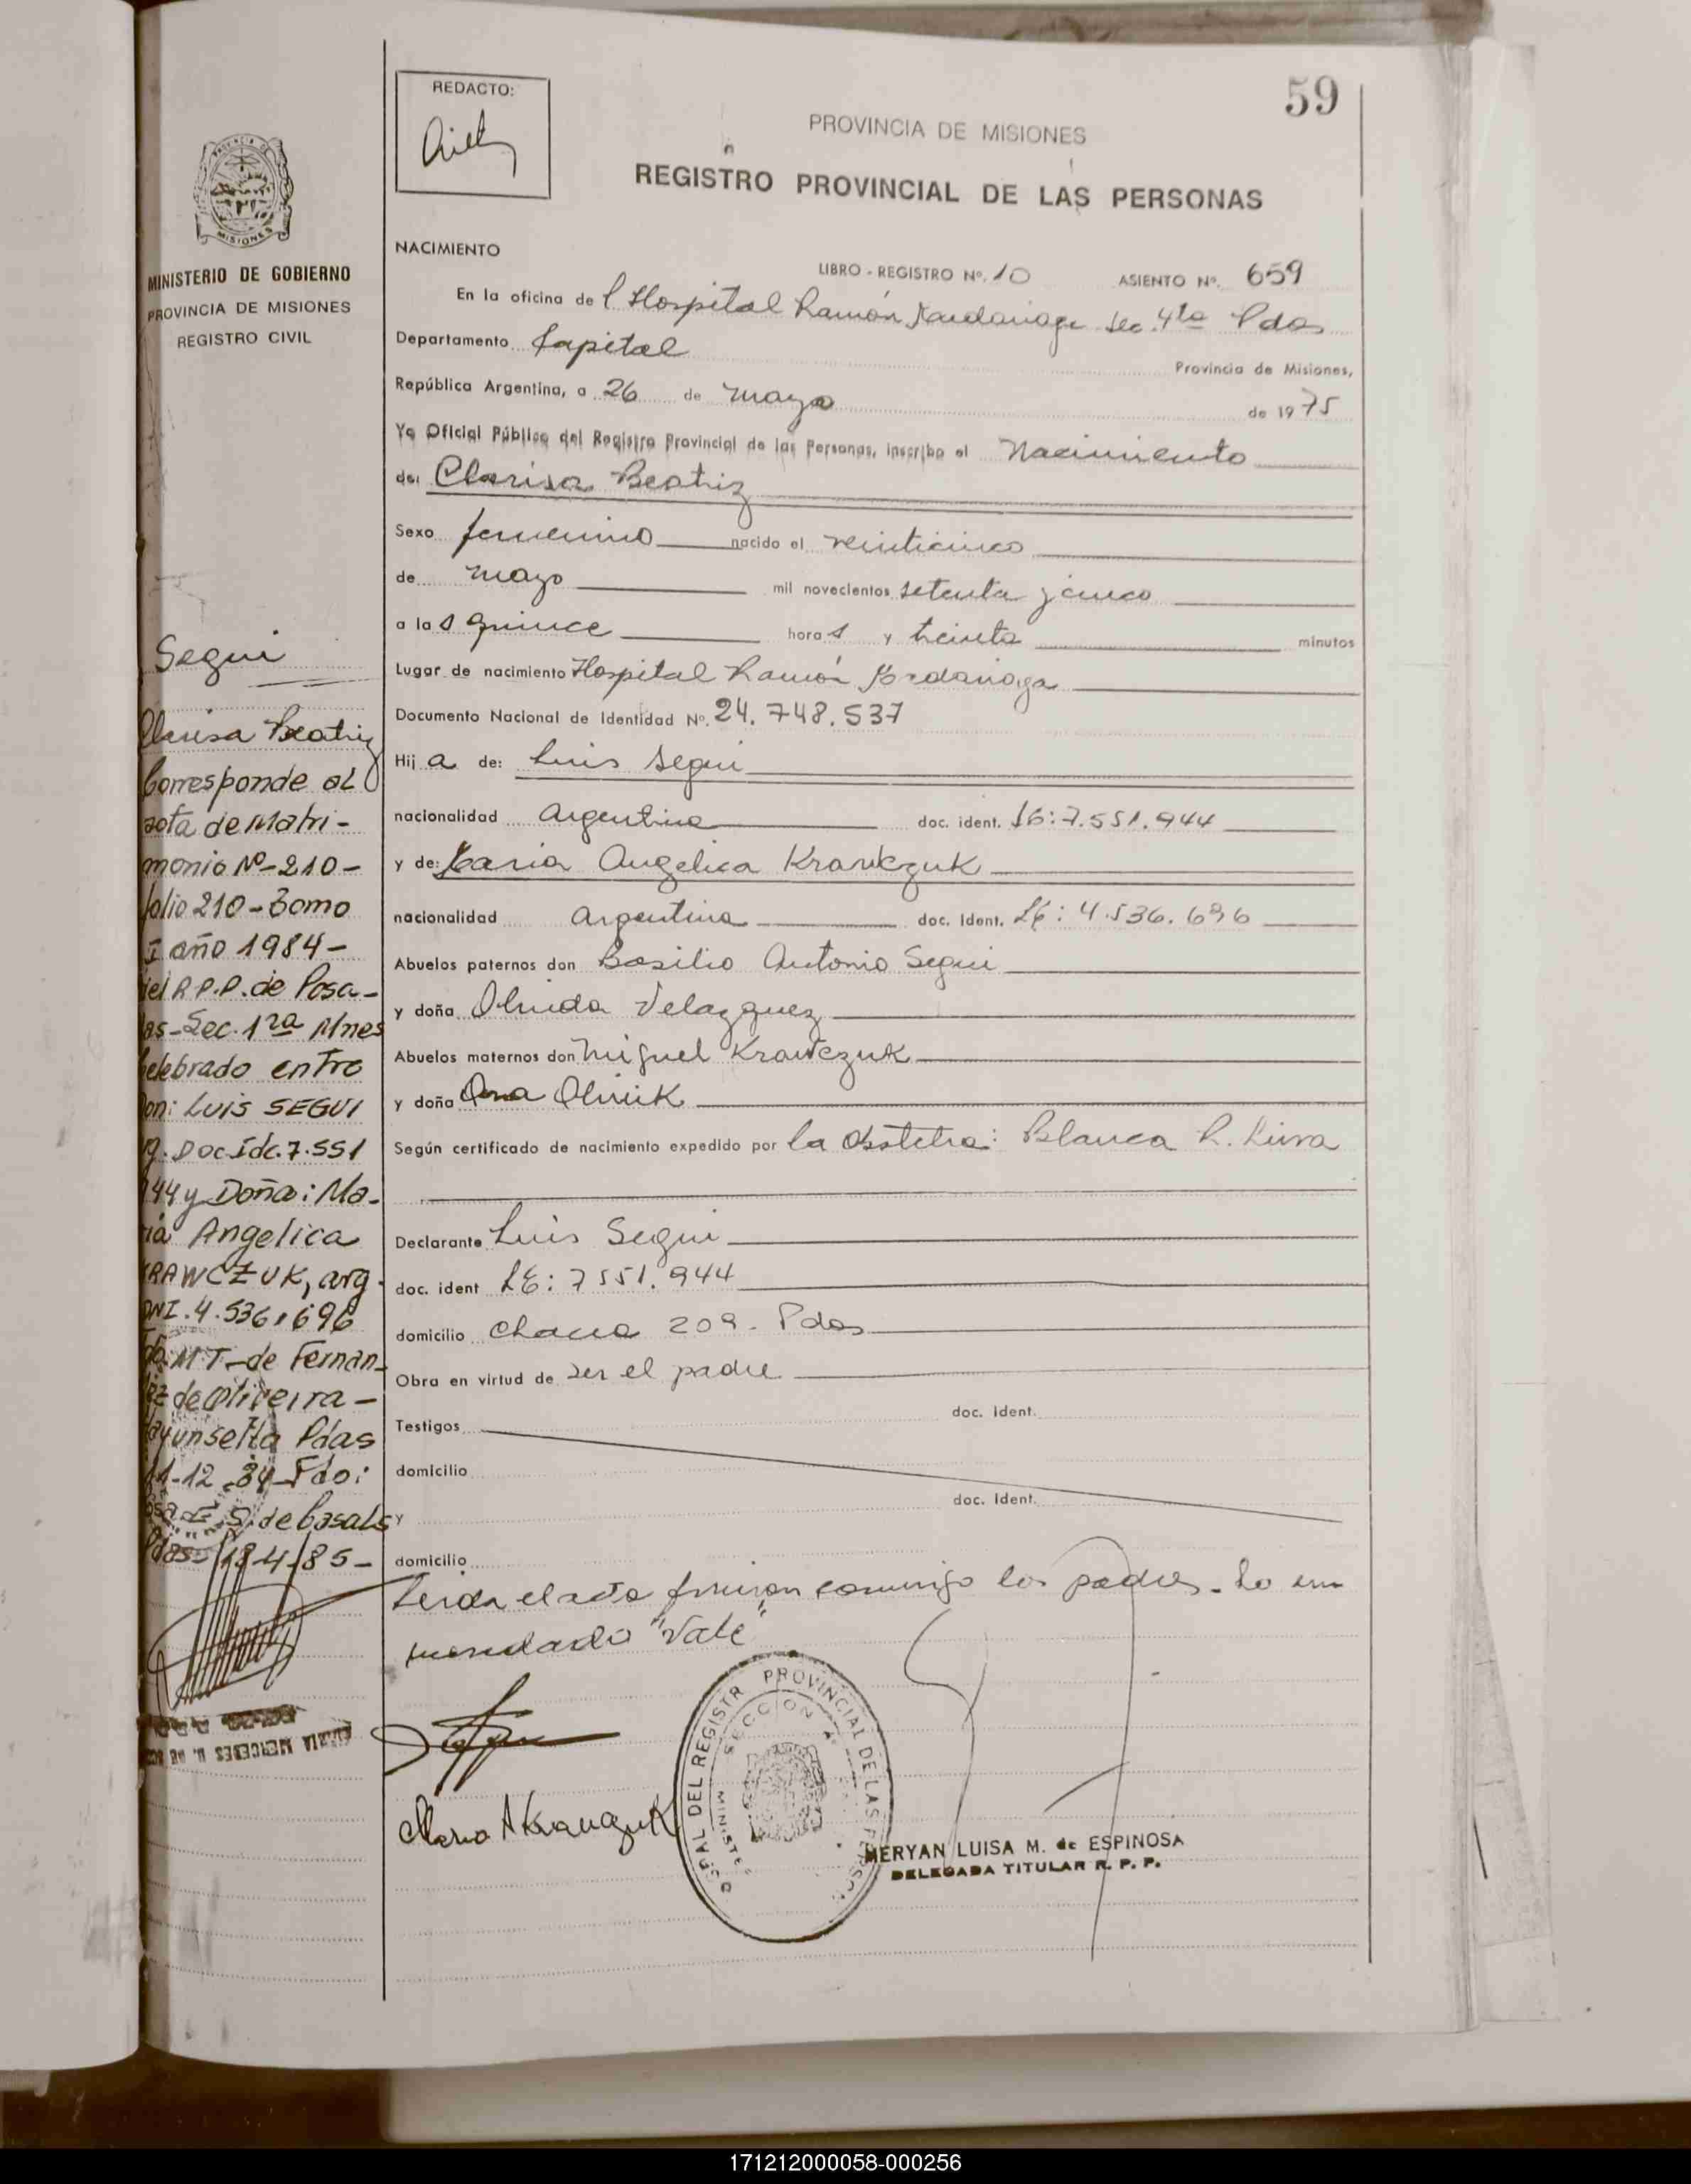 59
REDACTO:
PROVINCIA DE MISIONES
REGISTRO PROVINCIAL DE LAS PERSONAS
MISIONES
MINISTERIO DE GOBIERNO
PROVINCIA DE MISIONES
REGISTRO CIVIL
NACIMIENTO
LIBRO - REGISTRO Nº. 10 ASIENTO Nº. 659
En la oficina de l Hospital Ramón Madariaga Sec. 4ta Pdas
Departamento Capital
Provincia de Misiones,
República Argentina, a 26 de mayo de 1975
Yo Oficial Público del Registro Provincial de las Personas, inscribo el Nacimiento
de: Clarisa Beatriz
Sexo femenino nacido el veinticinco
de mayo mil novecientos setenta y cinco
a las quince horas y treinta minutos
Lugar de nacimiento Hospital Ramón Madariaga
Documento Nacional de Identidad Nº. 24.748.537
Hija de: Luis Segui
nacionalidad Argentina doc. ident. LE: 7.551.944
y de: Maria Angelica Krawczuk
nacionalidad argentina doc. Ident. LE: 4.536.696
Abuelos paternos don Basilio Antonio Segui
y doña Olinda Velazquez
Abuelos maternos don Miguel Krawczuk
y doña Ana Olinik
Según certificado de nacimiento expedido por la Obstetra: Blanca R.
Declarante Luis Segui
doc. ident LE: 7551.944
domicilio Chaco 209. Pdas
Obra en virtud de ser el padre
doc. Ident.
Testigos
domicilio
doc. Ident.
y
domicilio
Leida el acta firman conmigo los padres. Lo en
mendado "Vale"
Segui
Clarisa Beatriz
Corresponde al
acta de Matri-
monio Nº-210-
folio 210-Tomo
I año 1984-
del R.P.P. de Posa-
das-Sec. 1ra Mnes
Celebrado entre
Don: Luis SEGUI
arg. Doc. Idc. 7.551
944 y Doña: Ma-
ria Angelica
KRAWCZUK, arg.
DNI. 4.536.696
Fdo. M T. de Fernan-
dez de Oliveira-
Pdas
11-12-84-Fdo:
Rosa E. S. de Casals
Pdas-18-4-85-
Maria A Krawczuk
PROVINCIAL DE LAS PERSON
DEL REGISTR
SECCION 4
MINISTE
MERYAN LUISA M. de ESPINOSA
DELEGADA TITULAR R. P. P.
171212000058-000256